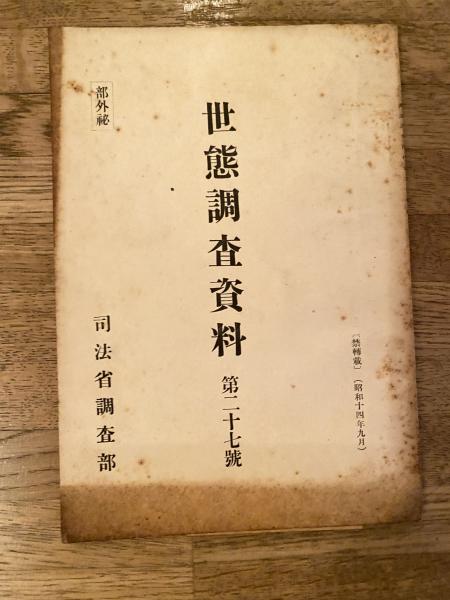 〔禁轉載〕（昭和十四年九月）
世態調査資料 第二十七號
司法省調査部
部外祕